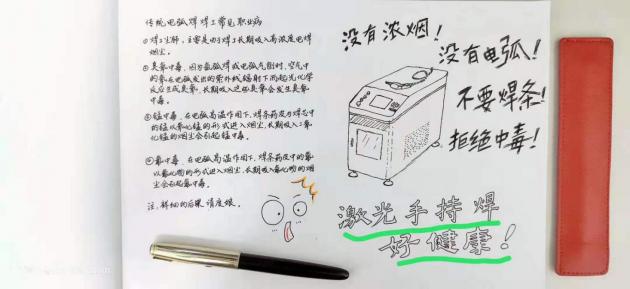 传统电弧焊焊工常见职业病
①焊工尘肺,主要是由于焊工长期吸入高浓度电焊
烟尘。
②臭氧中毒,因为氩弧焊或电弧气刨时,空气中
的氧在电弧发出的紫外线辐射下而起光化学
反应生成臭氧,长期吸入这些臭氧会发生臭氧
中毒。
③锰中毒,在电弧高温作用下,焊条药皮与焊芯中
的锰以氧化锰的形式进入烟尘,长期吸入二氧
化锰的烟尘会引起锰中毒。
④氟中毒,在电弧高温作用下,焊条药皮中的氟
以氟化物的形式进入烟尘,长期吸入氟化物的烟
尘会引起氟中毒。
注:详细的后果请度娘。
没有浓烟!
没有电弧!
不要焊条!
拒绝中毒!
激光手持焊
好健康!